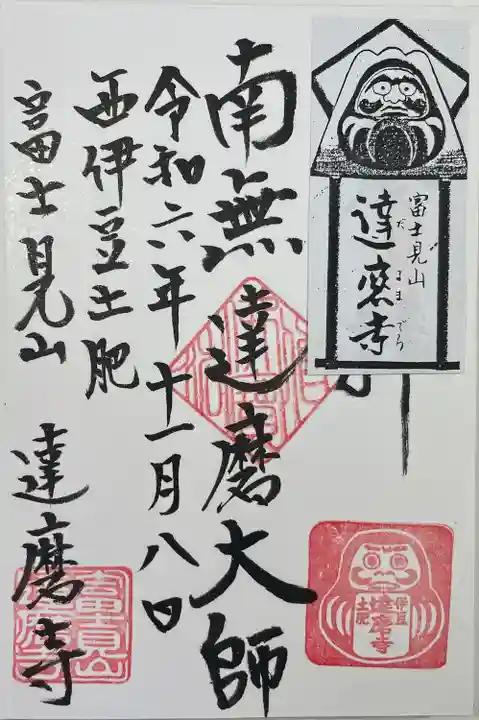 富士見山
達磨寺
だるまでら
南無達磨大師
令和六年十一月八日
西伊豆土肥
富士見山 達磨寺
伊豆
土肥
達磨寺
富士見山
達磨寺